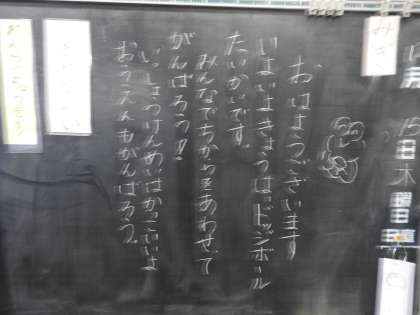 おはようございます
いよいよきょうは、ドッジボール
たいかいです。
みんなでちからをあわせて
がんばろう!!
いっしょうけんめいはかっこいいよ
おうえんもがんばろう。
15日木曜日